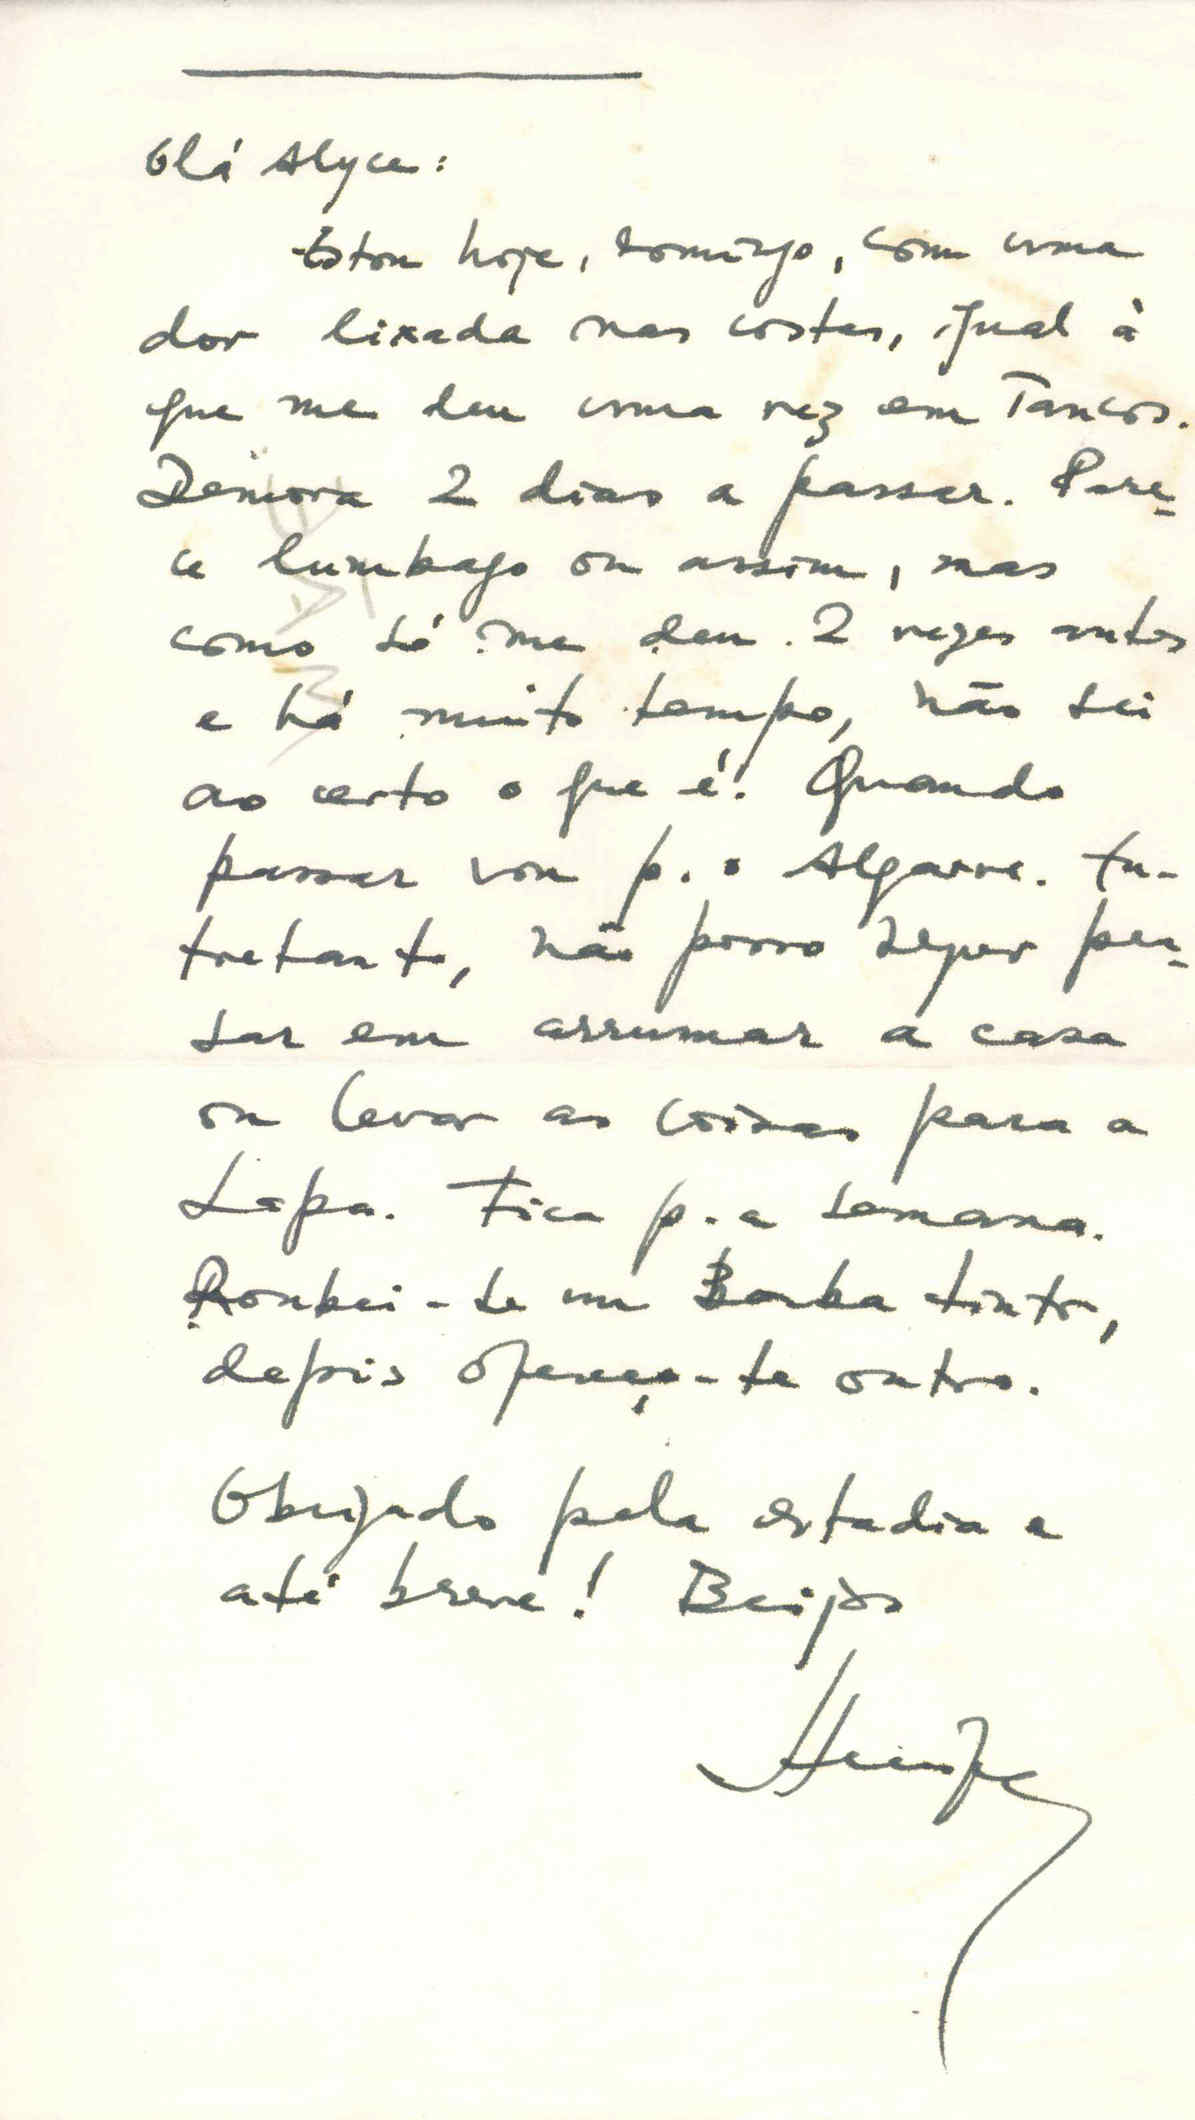 Olá Alyce:
Estou hoje, domingo, com uma
dor lixada nas costas, igual à
que me deu uma vez em Tancos.
Demora 2 dias a passar. Pare-
ce lumbago ou assim, mas
como só me deu 2 vezes antes
e há muito tempo, não sei
ao certo o que é! Quando
passar vou p. o Algarve. En-
tretanto, não posso sequer pen-
sar em arrumar a casa
ou levar as coisas para a
Lapa. Fica p. a semana.
Roubei-te um Borba tinto,
depois ofereço-te outro.
Obrigado pela estadia e
até breve! Beijos